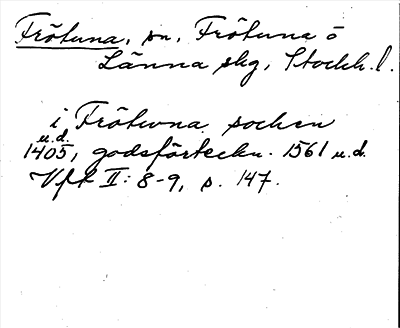 Frötuna, sn, Frötuna ö
Länna skg, Stockh. l.
i Frötuna socken
u.d.
1405, godsförteckn. 1561 u.d.
Vfk II: 8-9, s. 147.